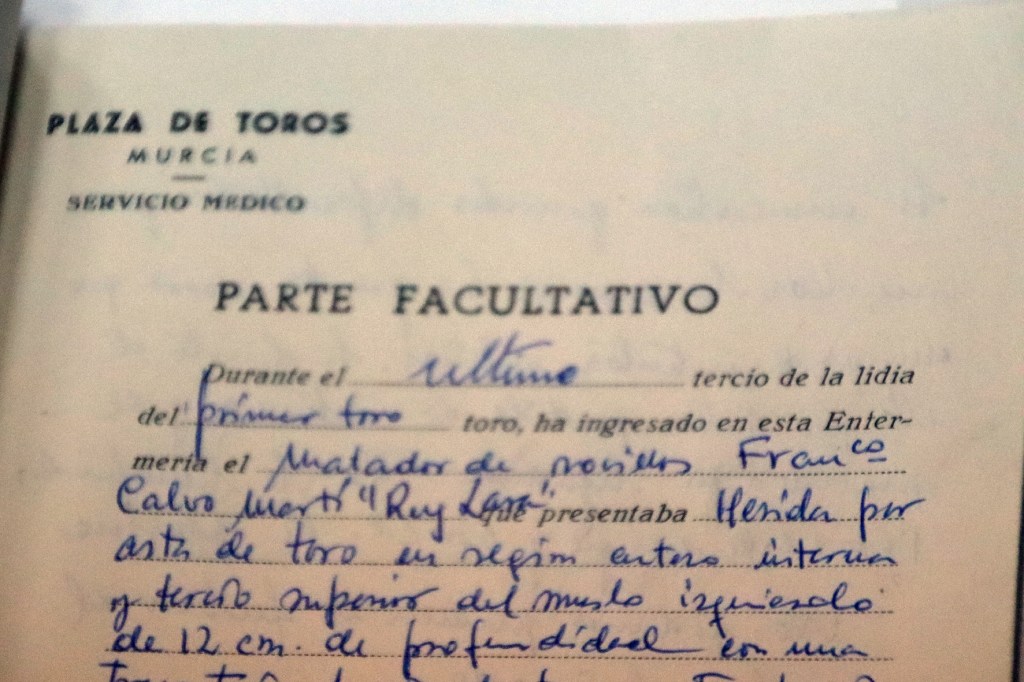 PLAZA DE TOROS
MURCIA
SERVICIO MEDICO
PARTE FACULTATIVO
Durante el ultimo tercio de la lidia
del primer toro toro, ha ingresado en esta Enfer-
mería el Matador de novillos Franco
Calvo Martí "Ruy Lara" que presentaba Herida por
asta de toro en región antero interna
y tercio superior del muslo izquierdo
de 12 cm. de profundidad con una